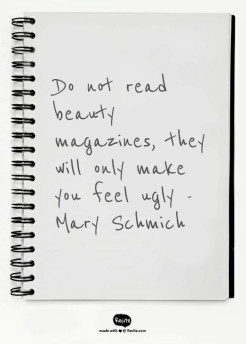 Do not read
beauty
magazines, they
will only make
you feel ugly -
Mary Schmich
Recite
made with ♥ @ Recite.com